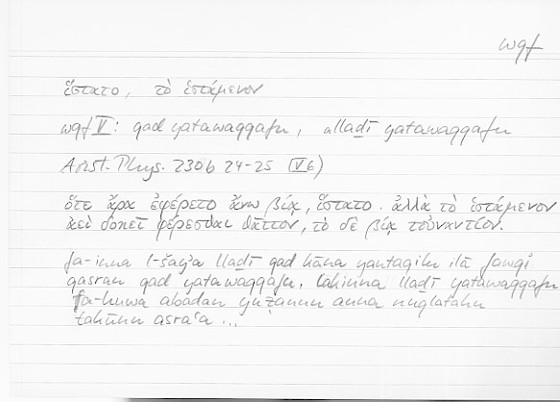 wqf
ἵστατο, τὸ ἱστάμενον
wqf V: qad yatawaqqafu, allaḏī yatawaqqafu
Arist. Phys. 230b 24-25 (V 6)
ὅτε ἄρα ἐφέρετο ἄνω βίᾳ, ἵστατο. ἀλλὰ τὸ ἱστάμενον
ἀεὶ δοκεῖ φέρεσθαι θᾶττον, τὸ δὲ βίᾳ τοὐναντίον.
fa-inna l-šayʾa llaḏī qad kāna yantaqilu ilā fawqi
qasran qad yatawaqqafu, lākinna llaḏī yatawaqqafu
fa-huwa abadan yuẓannu anna nuqlatahu
takūnu asraʿa ...